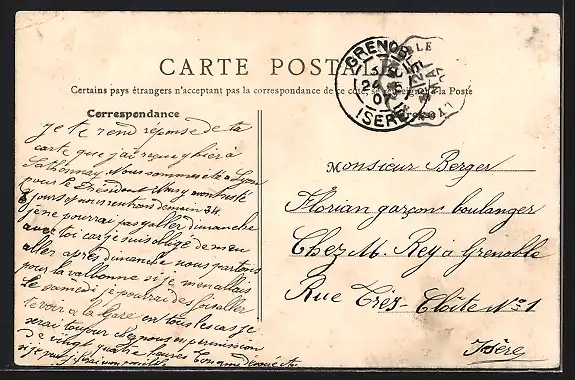 CARTE POSTALE
Certains pays étrangers n'acceptent pas la correspondance de ce côté, se renseigner à la Poste
Correspondance
je te rend réponse de ta
carte que j'ai reçu hier à
Sathonnay. Nous sommes été à Lyon
pour le Président nous y avons resté
jours et nous rentrons demain 24.
je ne pourrai pas aller dimanche
avec toi car je suis obligé de
aller après dimanche nous partons
pour la valbonne si je m'en allais
le samedi je pourrai
te voir a la gare en tous les cas je
serai toujour chez nous en permission
de vingt quatre heures
GRENOBLE
24
ISERE
Monsieur Berger
Florian garçon boulanger
Chez M. Rey à Grenoble
Rue Très-Cloître N° 1
Isère